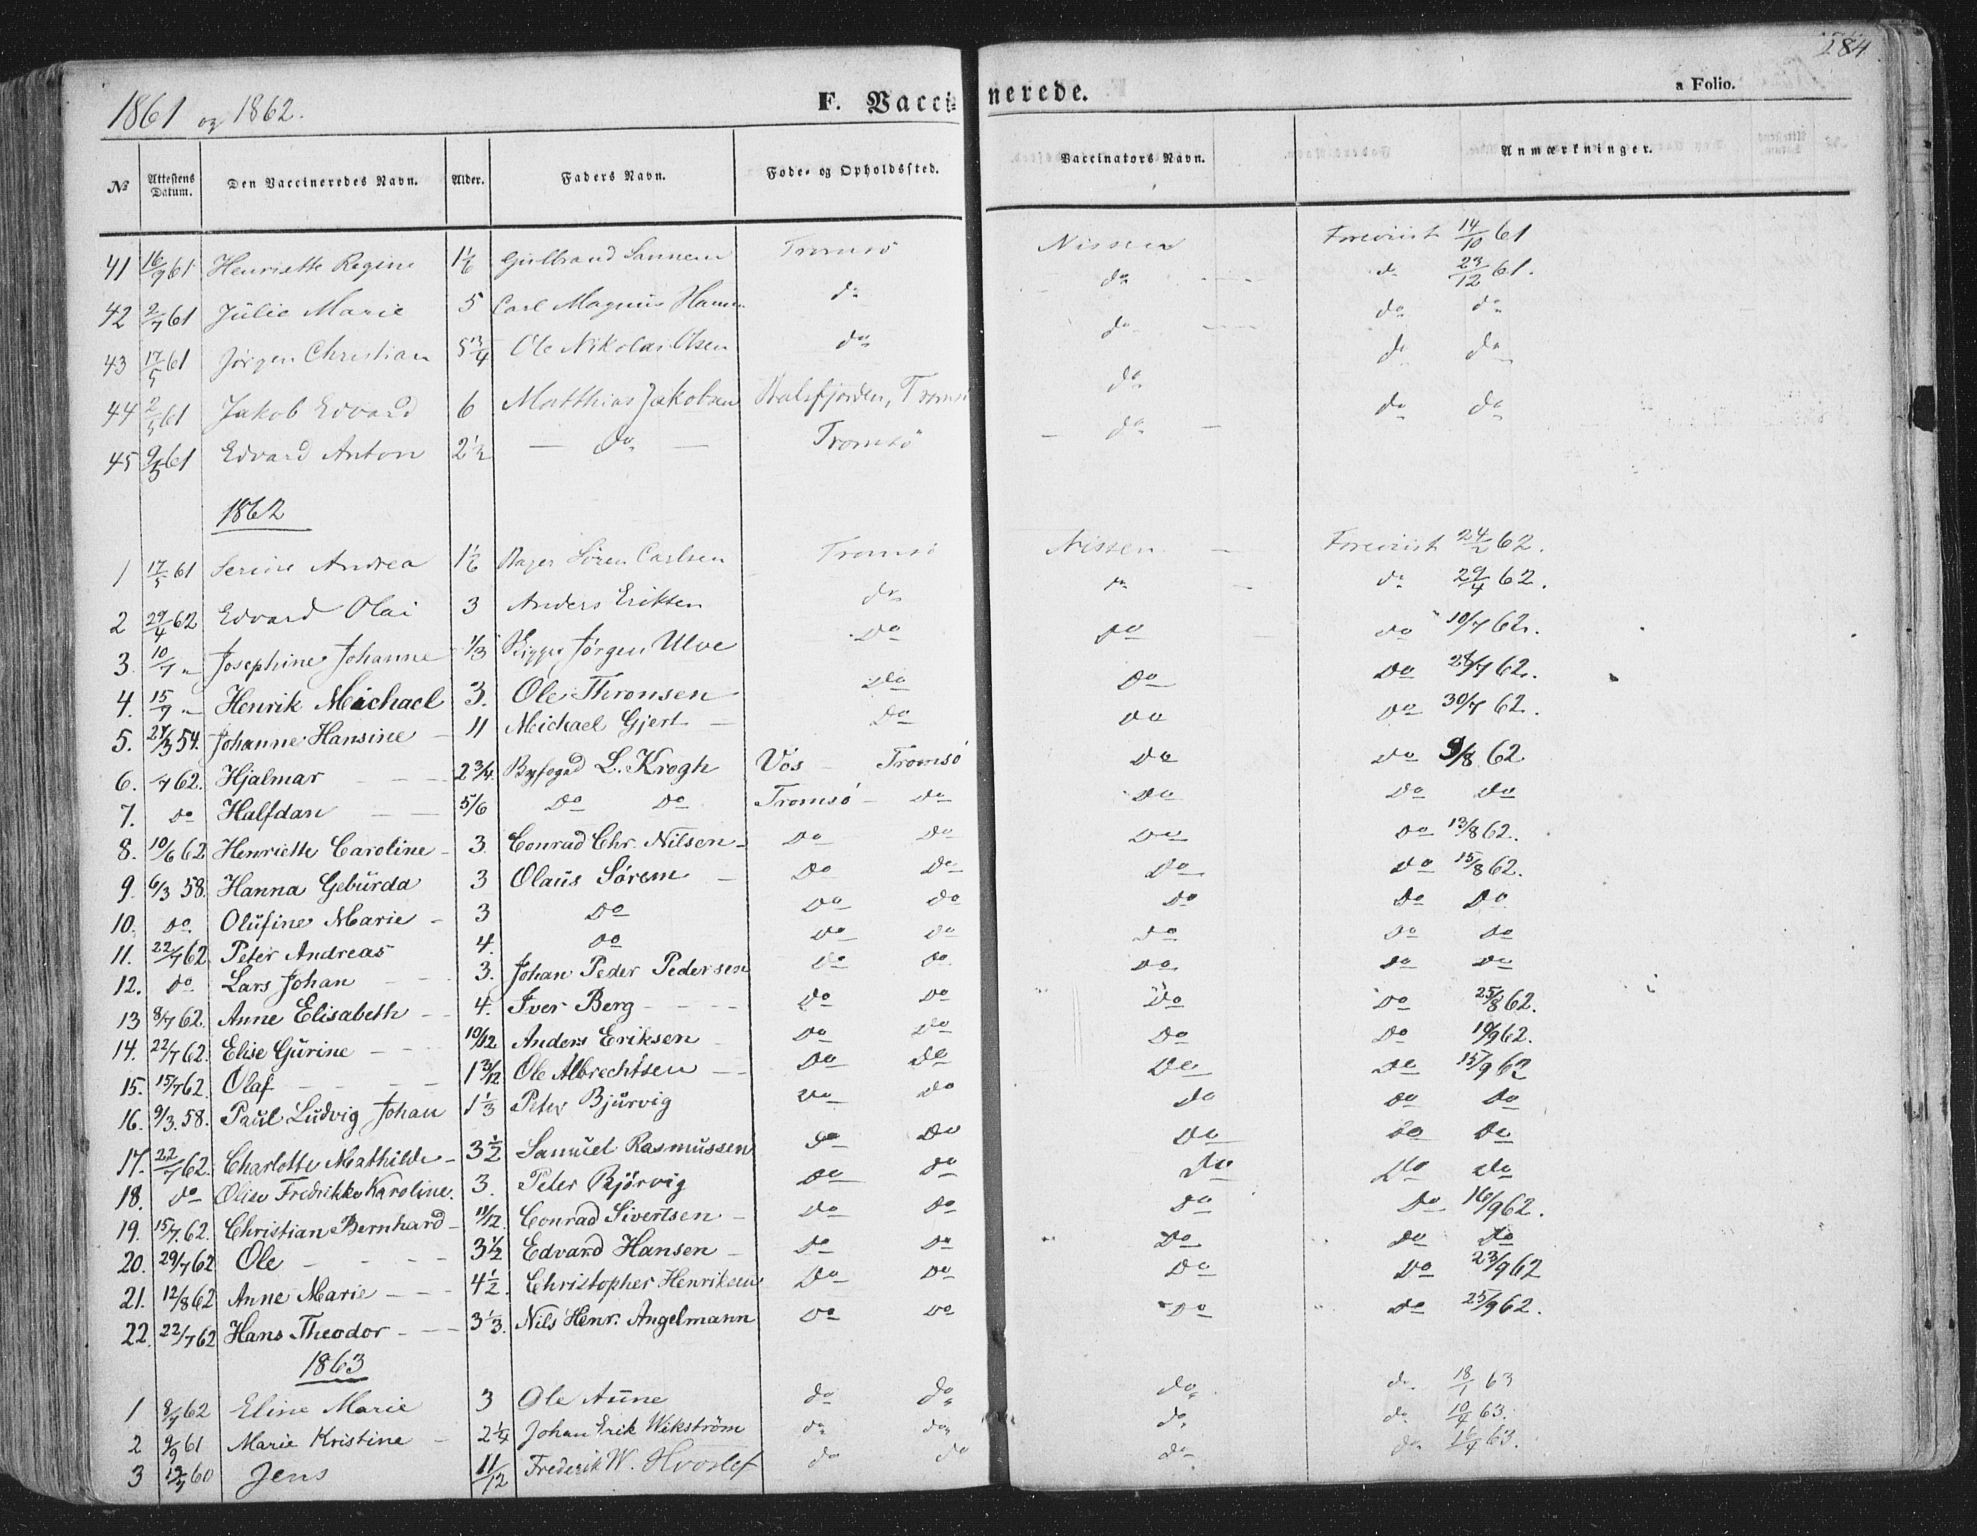 284
1861 og 1862.
F. Vaccinerede.
a Folio.
No Attestens Datum. Den Vaccineredes Navn. Alder. Faders Navn. Føde- og Opholdssted. Vaccinators Navn. Anmærkninger.
41 16/9 61 Henriette Regine 1 1/6 Gulbrand Sannem Tromsö Nissen Foreviist 14/10 61
42 2/7 61 Julie Marie 5 Carl Magnus do do do 23/12 61.
43 17/5 61 Jörgen Christian Ole Nikolai Olsen do do do do
44 2/5 61 Jakob Edvard 6 Matthias Jakobsen Balsfjorden, Tromsö do do do
45 9/5 61 Edvard Anton 2 1/2 do Tromsö do do do
1862
1 17/5 61 Serine Andrea 1 1/6 Søren Carlsen Tromsö Nissen Foreviist 24/2 62.
2 29/4 62 Edvard Olai 3 Anders Eriksen do do do 29/4 62.
3. 10/7 " Josephine Johanne 1/3 Skipper Jørgen Ulve Do Do Do 10/7 62.
4. 15/7 " Henrik Michael 3. Ole Thronsen Do Do Do 28/7 62.
5. 24/3 54. Johanne Hansine 11 Michael Gjert Do Do Do 30/7 62.
6. /7 62. Hjalmar 2 3/4 Byfogd L. Krogh Vos Tromsö Do Do 9/8 62
7. Do Halfdan 5/6 Do Do Tromsö Do Do Do Do
8. 10/6 62 Henriette Caroline 3. Conrad Chr. Nilsen Do Do Do Do 13/8 62.
9. 6/3 58. Hanna Gebürda 3 Olaus Sörem Do Do Do Do 15/8 62.
10. Do Olufine Marie 3 Do Do Do Do Do Do
11. 22/7 62. Peter Andreas 4. Do Do Do Do Do Do
12. Do Lars Johan 3. Johan Peder Pedersen Do Do Do Do Do
13 8/7 62. Anne Elisabeth 4. Iver Berg Do Do Do Do 25/8 62.
14. 22/7 62. Elise Gurine 10/12 Anders Eriksen Do Do Do Do 10/9 62.
15. 15/7 62. Olaf Ole Albrechtsen Do Do Do Do 15/9 62
16. 9/3. 58. Paul Ludvig Johan 1 1/3 Peter Bjurvig Do Do Do Do Do
17. 22/7 62. Charlotte Mathilde 3 1/2 Samuel Rasmussen Do Do Do Do Do
18. Do Olise Fredrikke Karoline. 3. Peter Bjørvig Do Do Do Do Do
19. 15/7. 62. Christian Bernhard 11/12. Conrad Sivertsen Do Do Do Do 16/9 62.
20. 29/7 62 Ole 3 1/2 Edvard Hansen Do Do Do Do Do
21. 12/8 62 Anne Marie 4 1/2. Christopher Henriksen Do Do Do Do 23/9 62
22. 22/7 62 Hans Theodor 3 1/3. Nils Henr. Angelmann Do Do Do Do 25/9 62.
1863
1 8/7 62 Eline Marie 3 Ole Aune do do do do 18/1 63
2 9/9 61 Marie Kristine 2 1/4 Johan Erik Wikström do do do do 10/4 63.
3 60 Jens 11/12 Frederik W. Hvoslef do do do do 16/4 63.